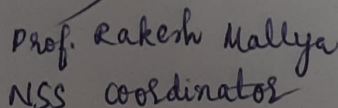 Prof. Rakesh Mallya
NSS coordinator